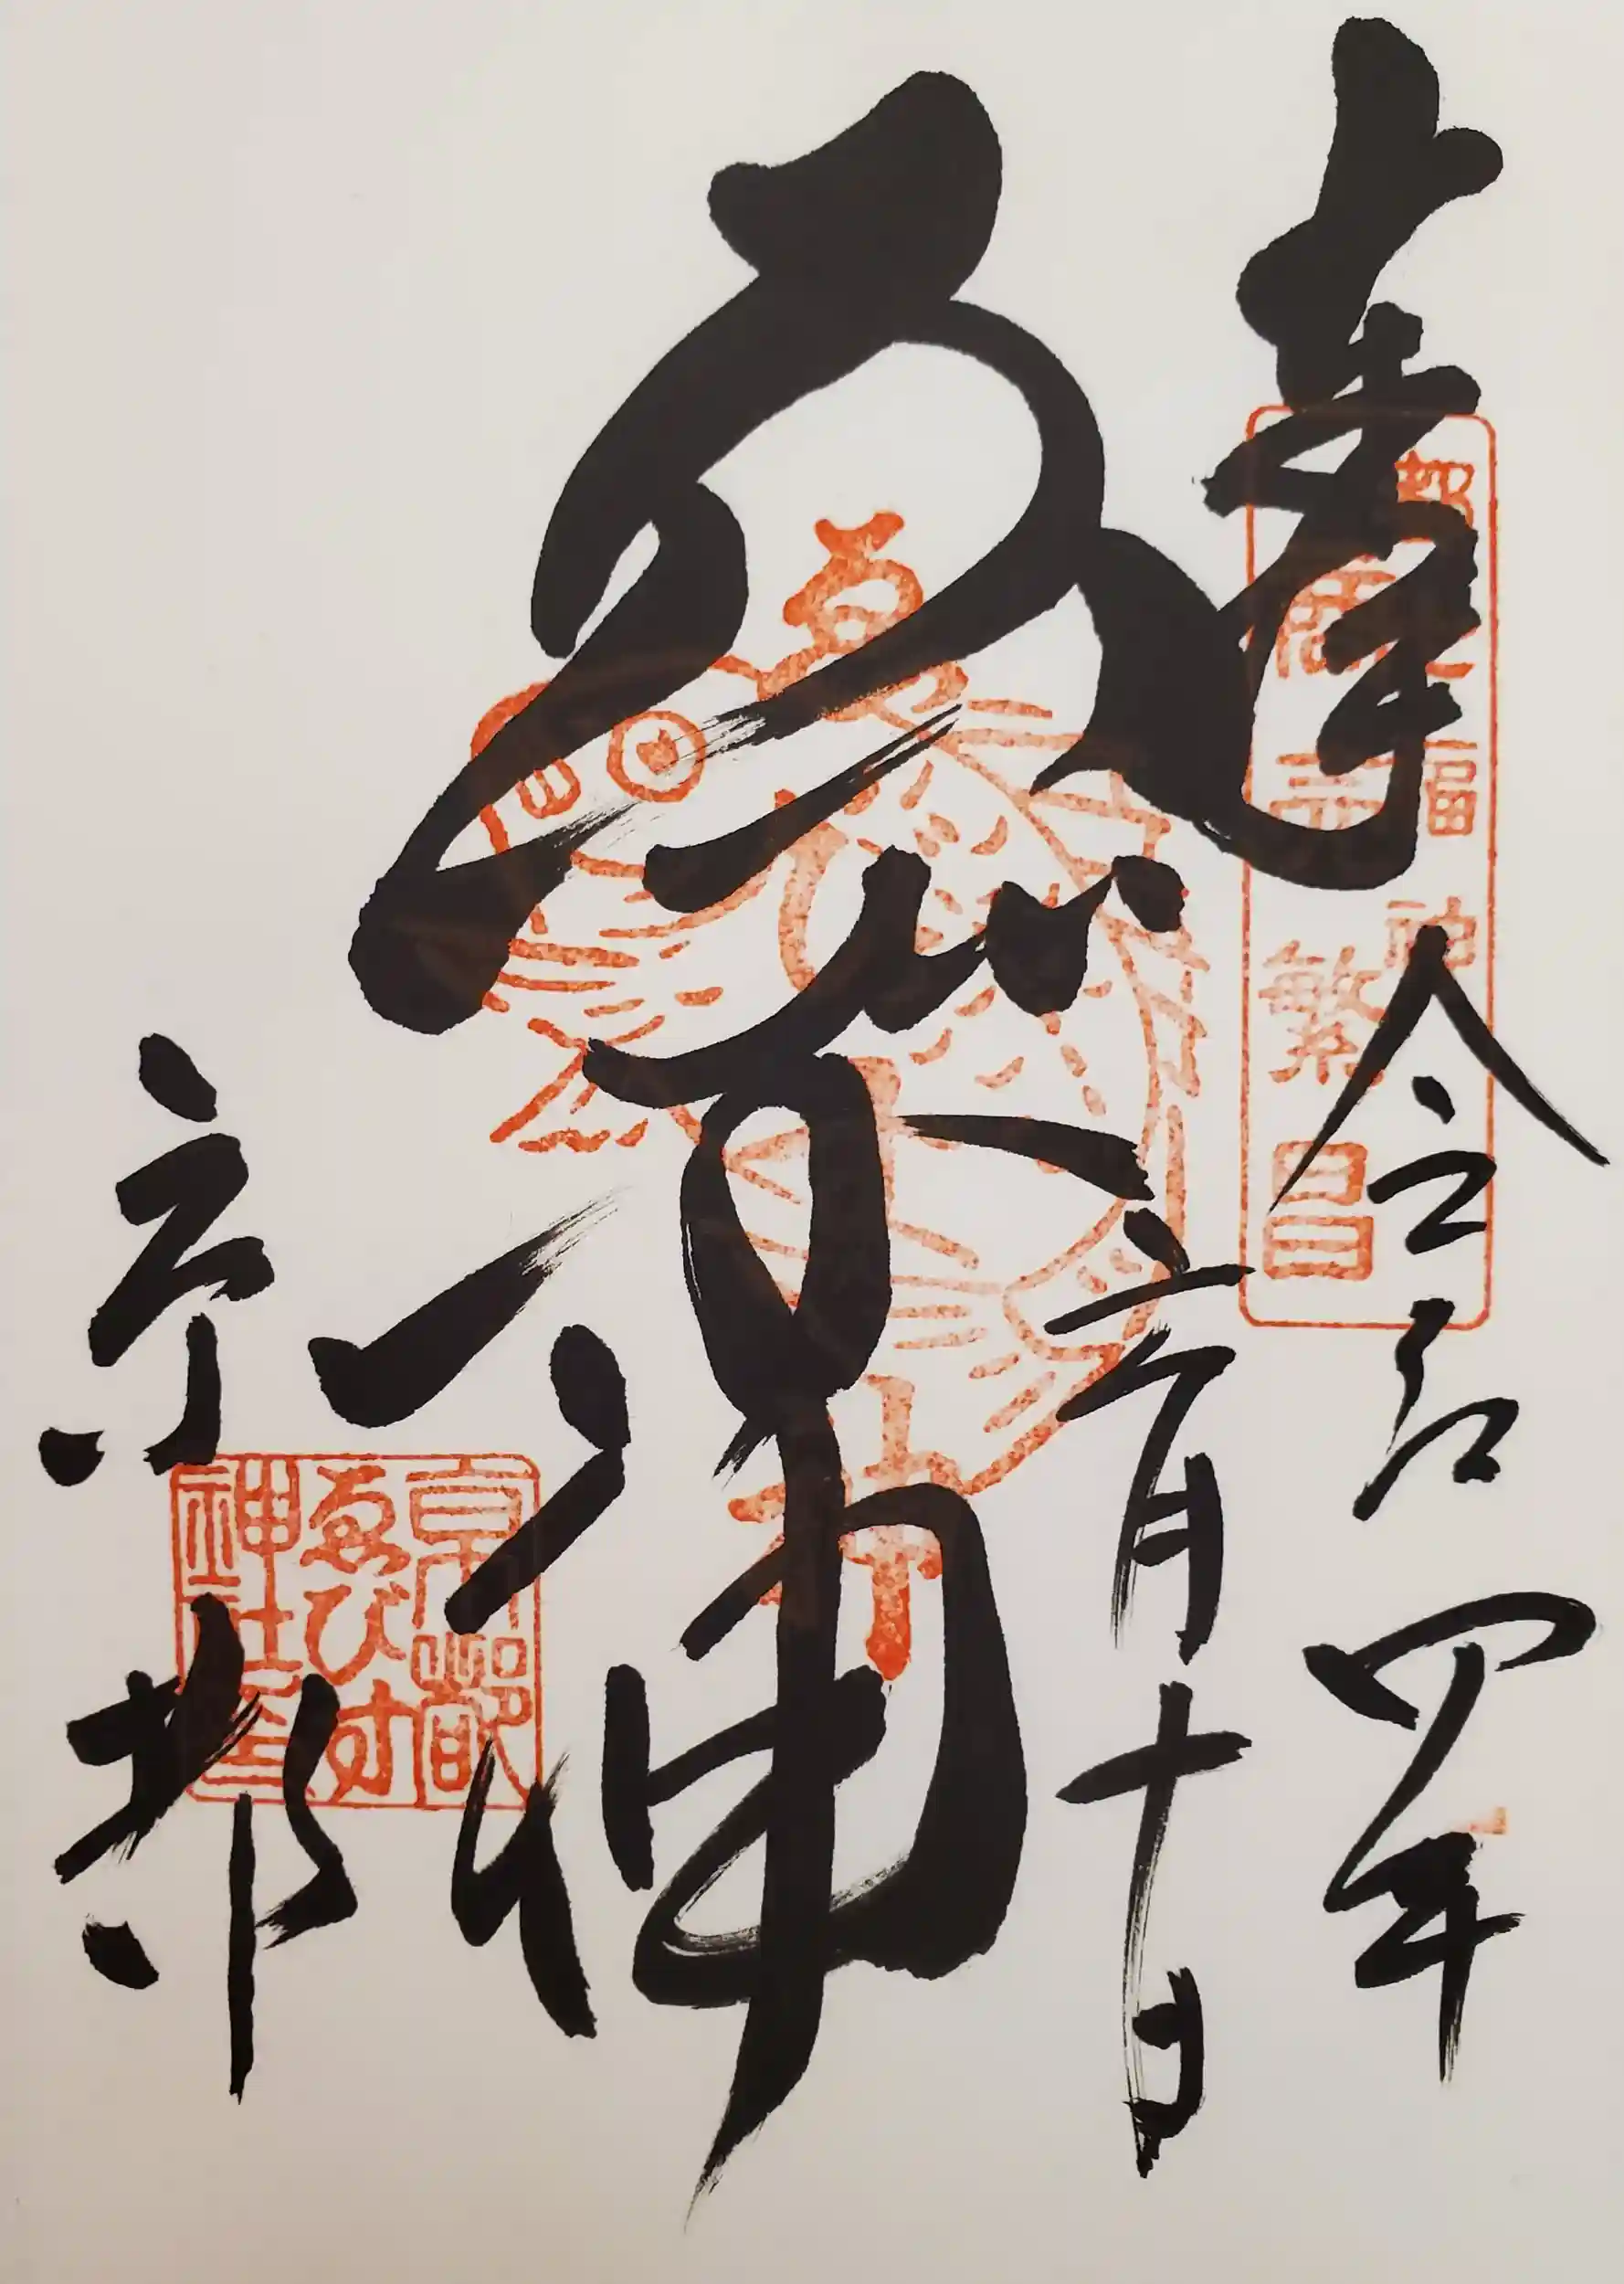 奉拝
令和四年
六月十日
ゑびす神
京都
都七福神
商売繁昌
京都
ゑびす
神社